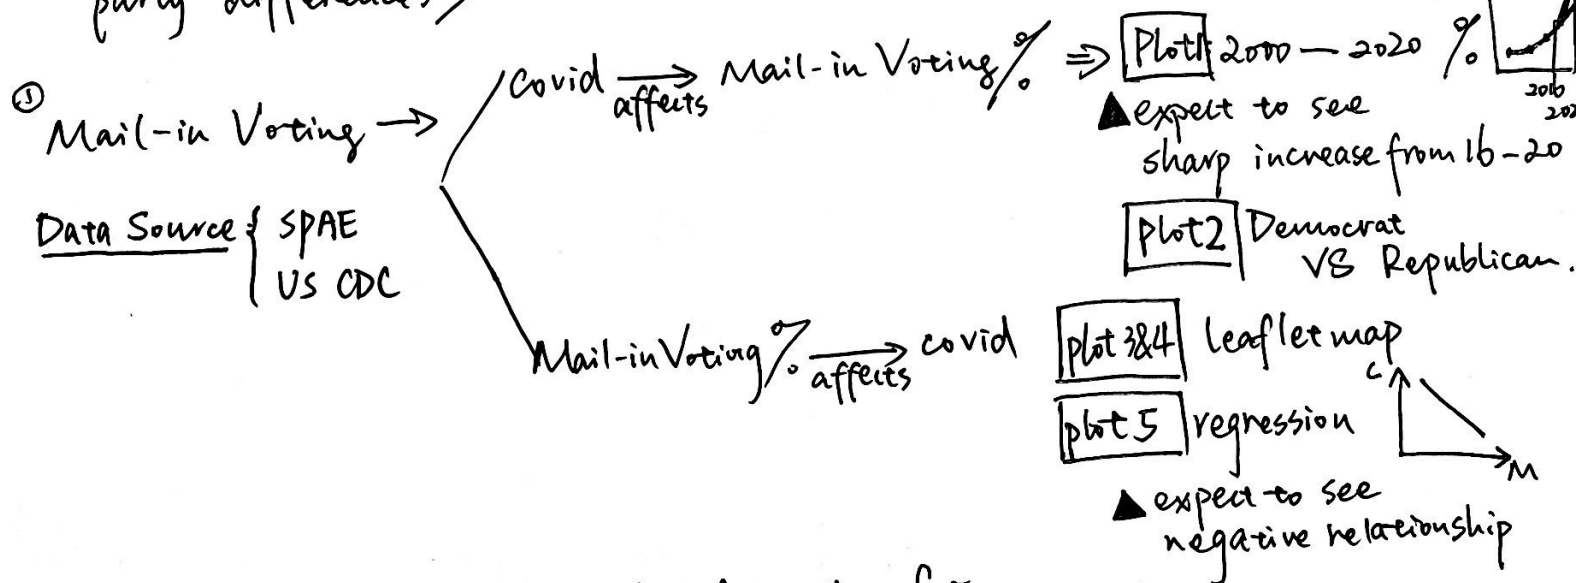 party differences)
③
Mail-in Voting →
Data Source { SPAE
US CDC
Covid → affects Mail-in Voting % ⇒ Plot1 2000 — 2020 %
2016
▲ expect to see
sharp increase from 16-20
plot2 Democrat
VS Republican.
Mail-in Voting % → affects covid
plot 3&4 leaflet map
plot 5 regression
C
M
▲ expect to see
negative relationship